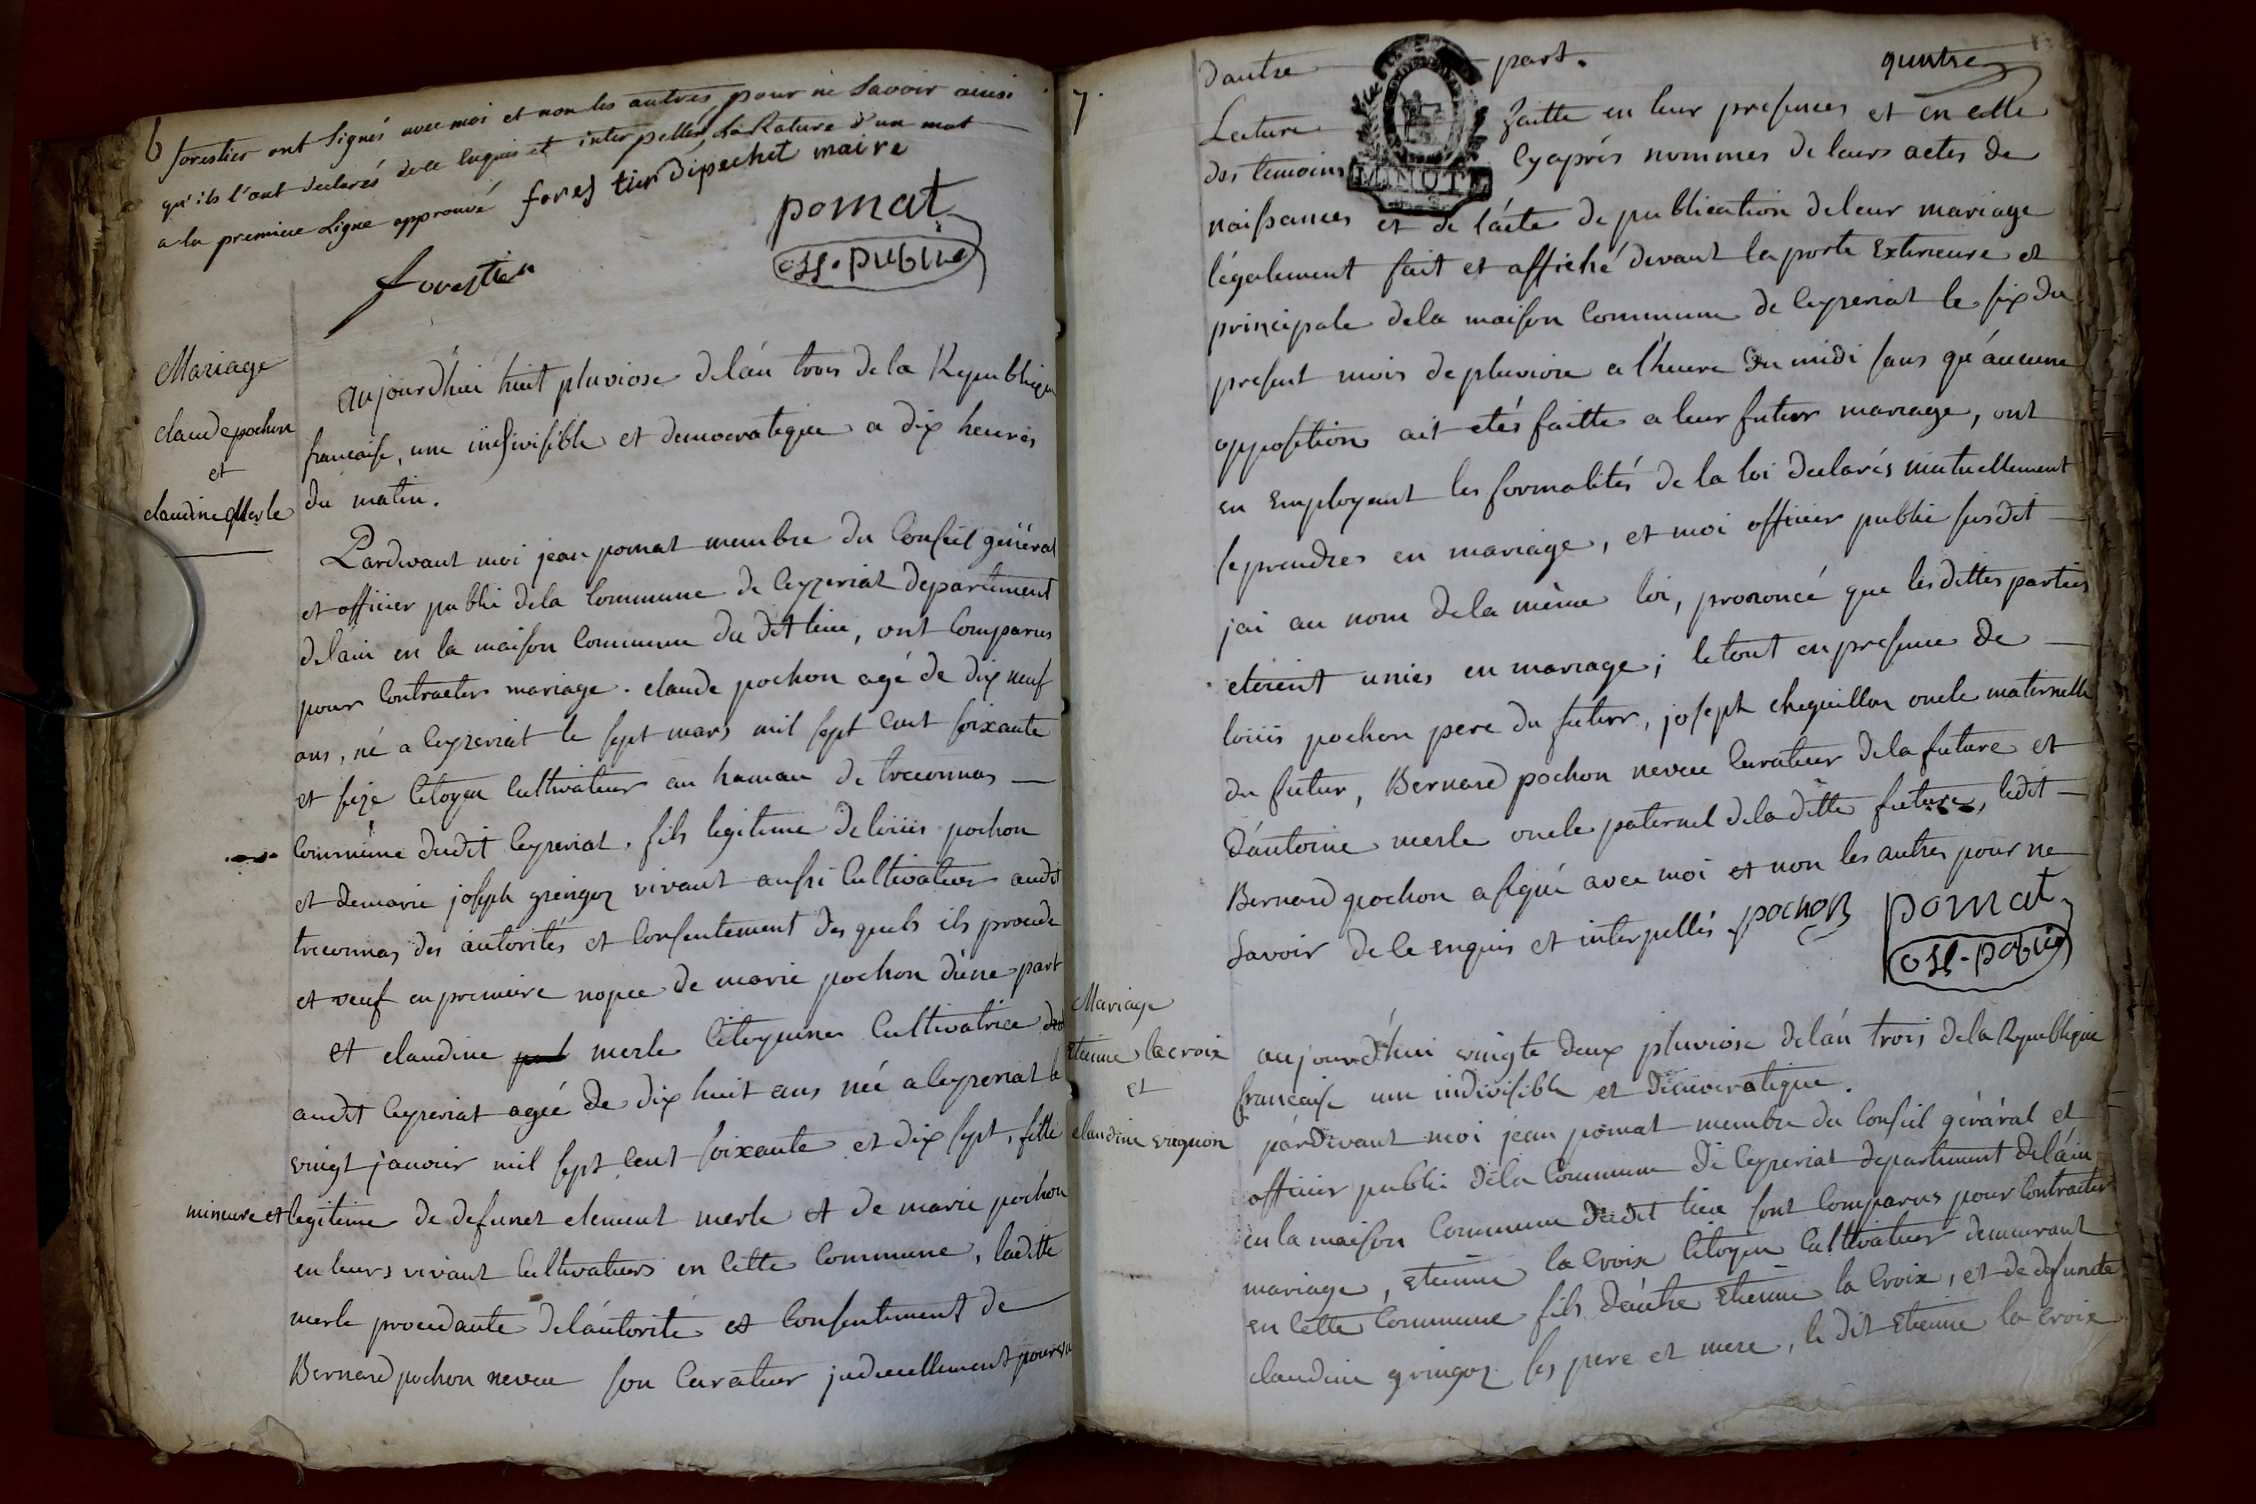 6
forestier ont signés avec moi et non les autres, pour ne savoir ainsi
qu'ils l'ont declarés de ce enquis et interpellés, la Rature d'un mot
a la premiere ligne approuvé forestier dipechet maire
pomat
off. public
forestier
Mariage
claude pochon
et
claudine Merle
aujourd'hui huit pluviose de l'an trois de la Republique
francaise, une indivisible et democratique a dix heures
du matin.
Pardevant moi jean pomat membre du Conseil général
et officier public de la Commune de Ceyzeriat departement
de l'ain en la maison Commune du dit lieu, ont Comparus
pour Contracter mariage. claude pochon agé de dix neuf
ans, né a Ceyzeriat le sept mars mil sept cent soixante
et seize Citoyen Cultivateur au hameau de treconnas
Commune dudit Ceyzeriat, fils legitime de louis pochon
et de marie joseph gringoz vivant aussi Cultivateur audit
treconnas des autorités et Consentement des quels ils procede
et veuf en premiere nopce de marie pochon d'une part
et claudine merle Citoyenne Cultivatrice
audit Ceyzeriat agée de dix huit ans née a Ceyzeriat le
vingt janvier mil sept cent soixante et dix sept, fille
mineure et legitime de defunct clement merle et de marie pochon
en leurs vivant Cultivateurs en Cette Commune, laditte
merle procedante de l'autorité et Consentement de
Bernard pochon neveu son Curateur judiciellement pourvu
7.
d'autre part.
Lecture faitte en leur presences et en celle
des temoins Cyaprés nommes de leurs actes de
MINUTE
naissances et de l'acte de publication de leur mariage
légalement fait et affiché devant la porte Exterieure et
principale de la maison Commune de Ceyzeriat le six du
present mois de pluviose a l'heure du midi sans qu'aucune
opposition ait etés faitte a leur futur mariage, ont
en Employant les formalités de la loi declarés mutuellement
se prendres en mariage, et moi officier public susdit
jai au nom de la même loi, prononcé que lesdittes parties
etoient unies en mariage; le tout en presence de
louis pochon pere du futur, joseph cheguillon oncle maternelle
du futur, Bernard pochon neveu Curateur de la future et
d'antoine merle oncle paternel de la ditte future, ledit
Bernard pochon a signé avec moi et non les autres pour ne
savoir de ce enquis et interpellés pochon
pomat
off. public
Mariage
Etienne lacroix
et
claudine vuignon
aujourd'hui vingte deux pluviose de l'an trois de la Republique
francaise une indivisible et democratique.
pardevant moi jean pomat membre du Conseil général et
officier public de la Commune de Ceyzeriat departement de l'ain
en la maison Commune dudit lieu sont Comparus pour Contracter
mariage, Etienne la Croix Citoyen Cultivateur demeurant
en Cette Commune fils d'autre Etienne la Croix, et de defuncte
claudine gringoz ses pere et mere, le dit Etienne la croix